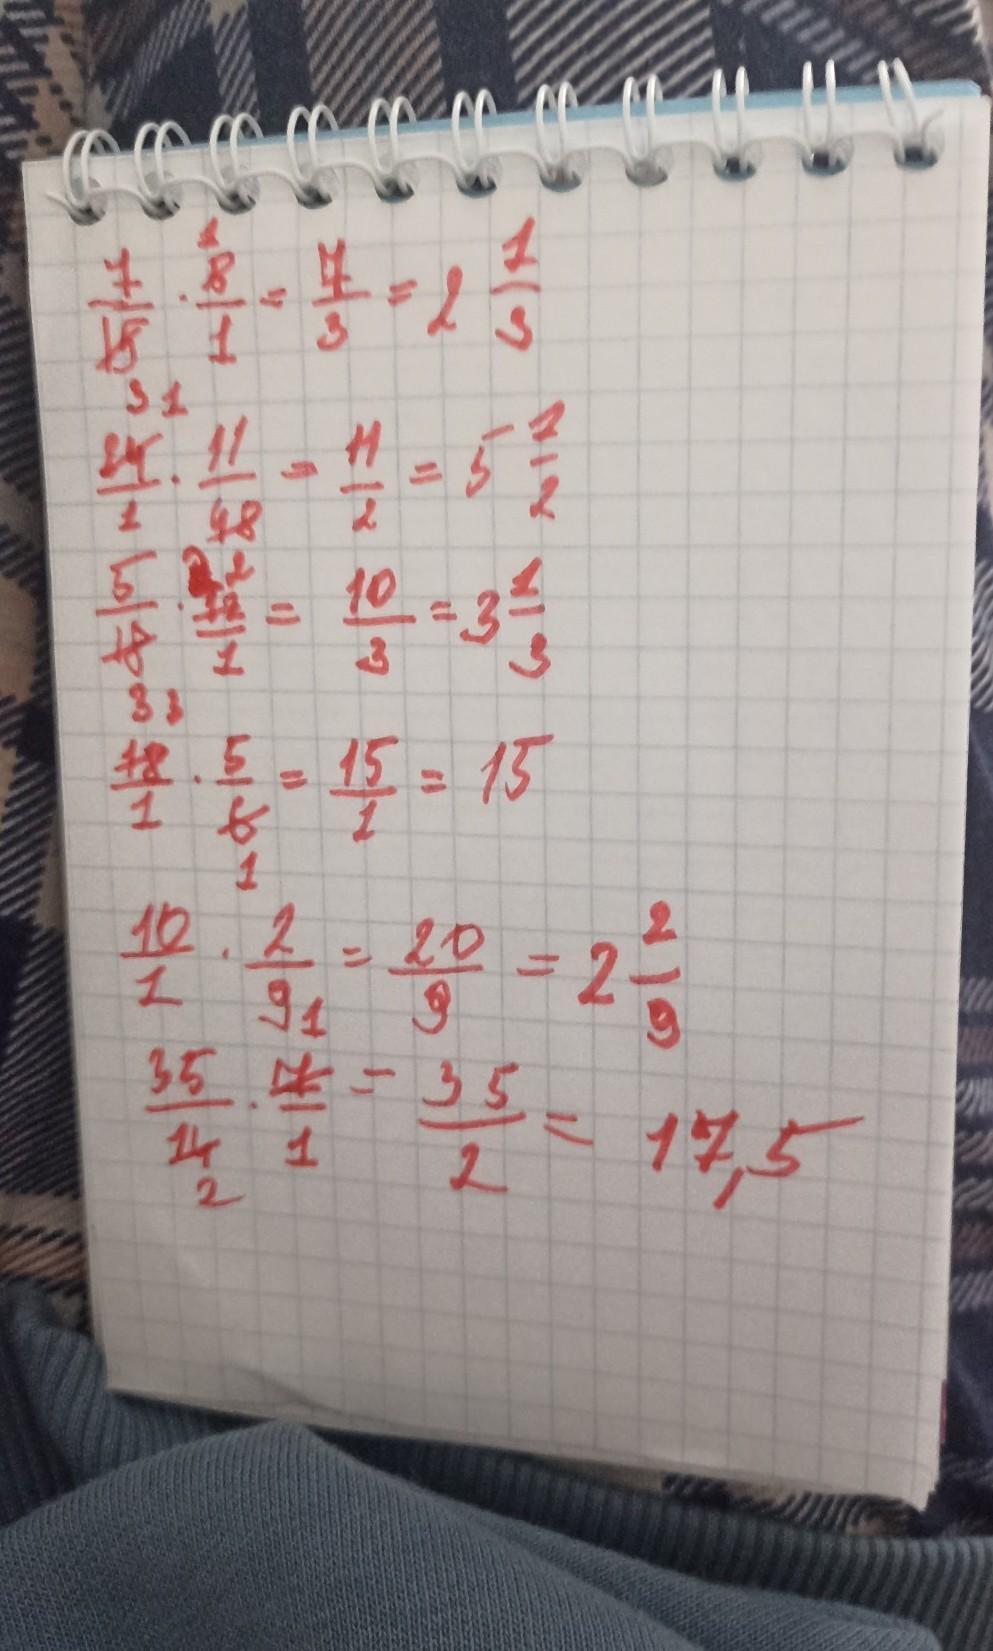 7/15 · 8/1 = 7/3 = 2 1/3
24/1 · 11/48 = 11/2 = 5 1/2
5/18 · 12/1 = 10/3 = 3 1/3
18/1 · 5/6 = 15/1 = 15
10/1 · 2/9 = 20/9 = 2 2/9
35/14 · 7/1 = 35/2 = 17,5